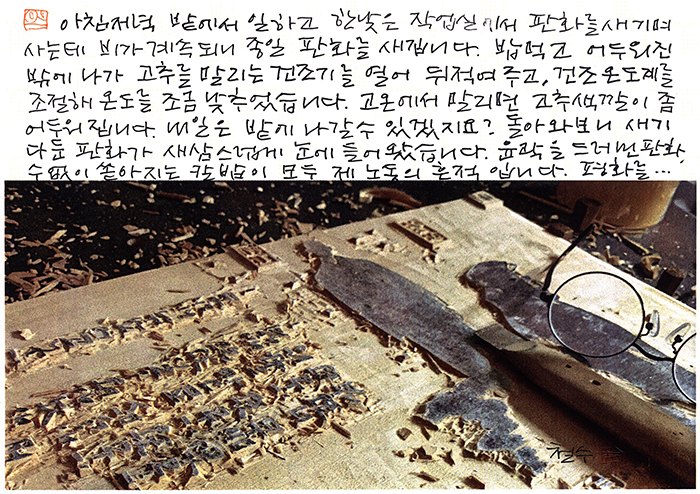 아침저녁 밭에서 일하고 한낮은 작업실에서 판화를 새기며
사는데 비가 계속되니 종일 판화를 새깁니다. 밥먹고 어두워진
밖에 나가 고추를 말리는 건조기를 열어 뒤적여 주고, 건조온도계를
조절해 온도를 조금 낮추었습니다. 고온에서 말리면 고추색깔이 좀
어두워집니다. 내일은 밭에 나갈 수 있겠지요? 돌아와보니 새기
다 둔 판화가 새삼스럽게 눈에 들어왔습니다. 윤곽을 드러낸 판화,
수없이 쏟아지는 칼밥이 모두 제 노동의 흔적입니다. 평화를...
철수